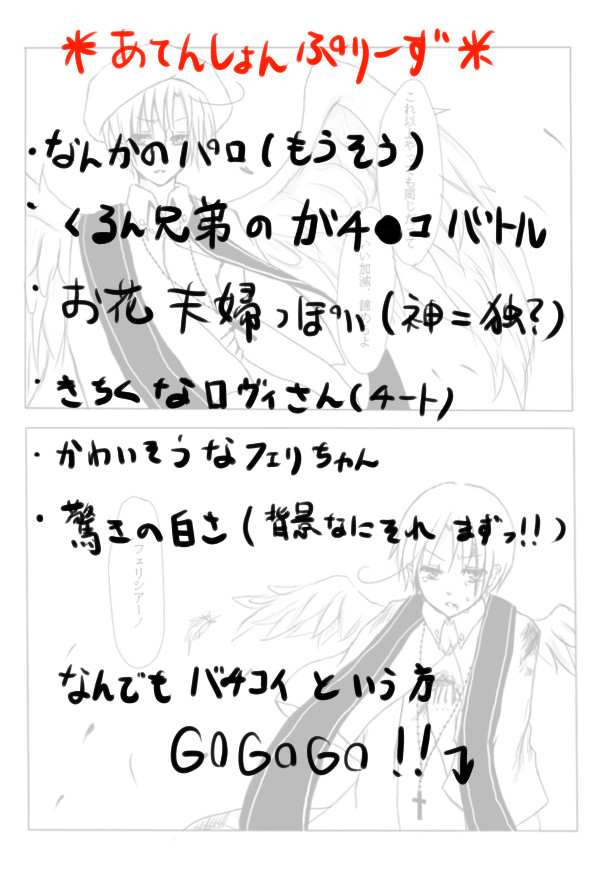 *あてんしょんぷりーず*
・なんかのパロ(もうそう)
・くるん兄弟のガチ●コバトル
・お花夫婦っぽい(神=独?)
・きちくなロヴィさん(チート)
・かわいそうなフェリちゃん
・驚きの白さ(背景なにそれまずっ!!)
フェリシアーノ
なんでもバチコイという方
GOGOGO!!↴